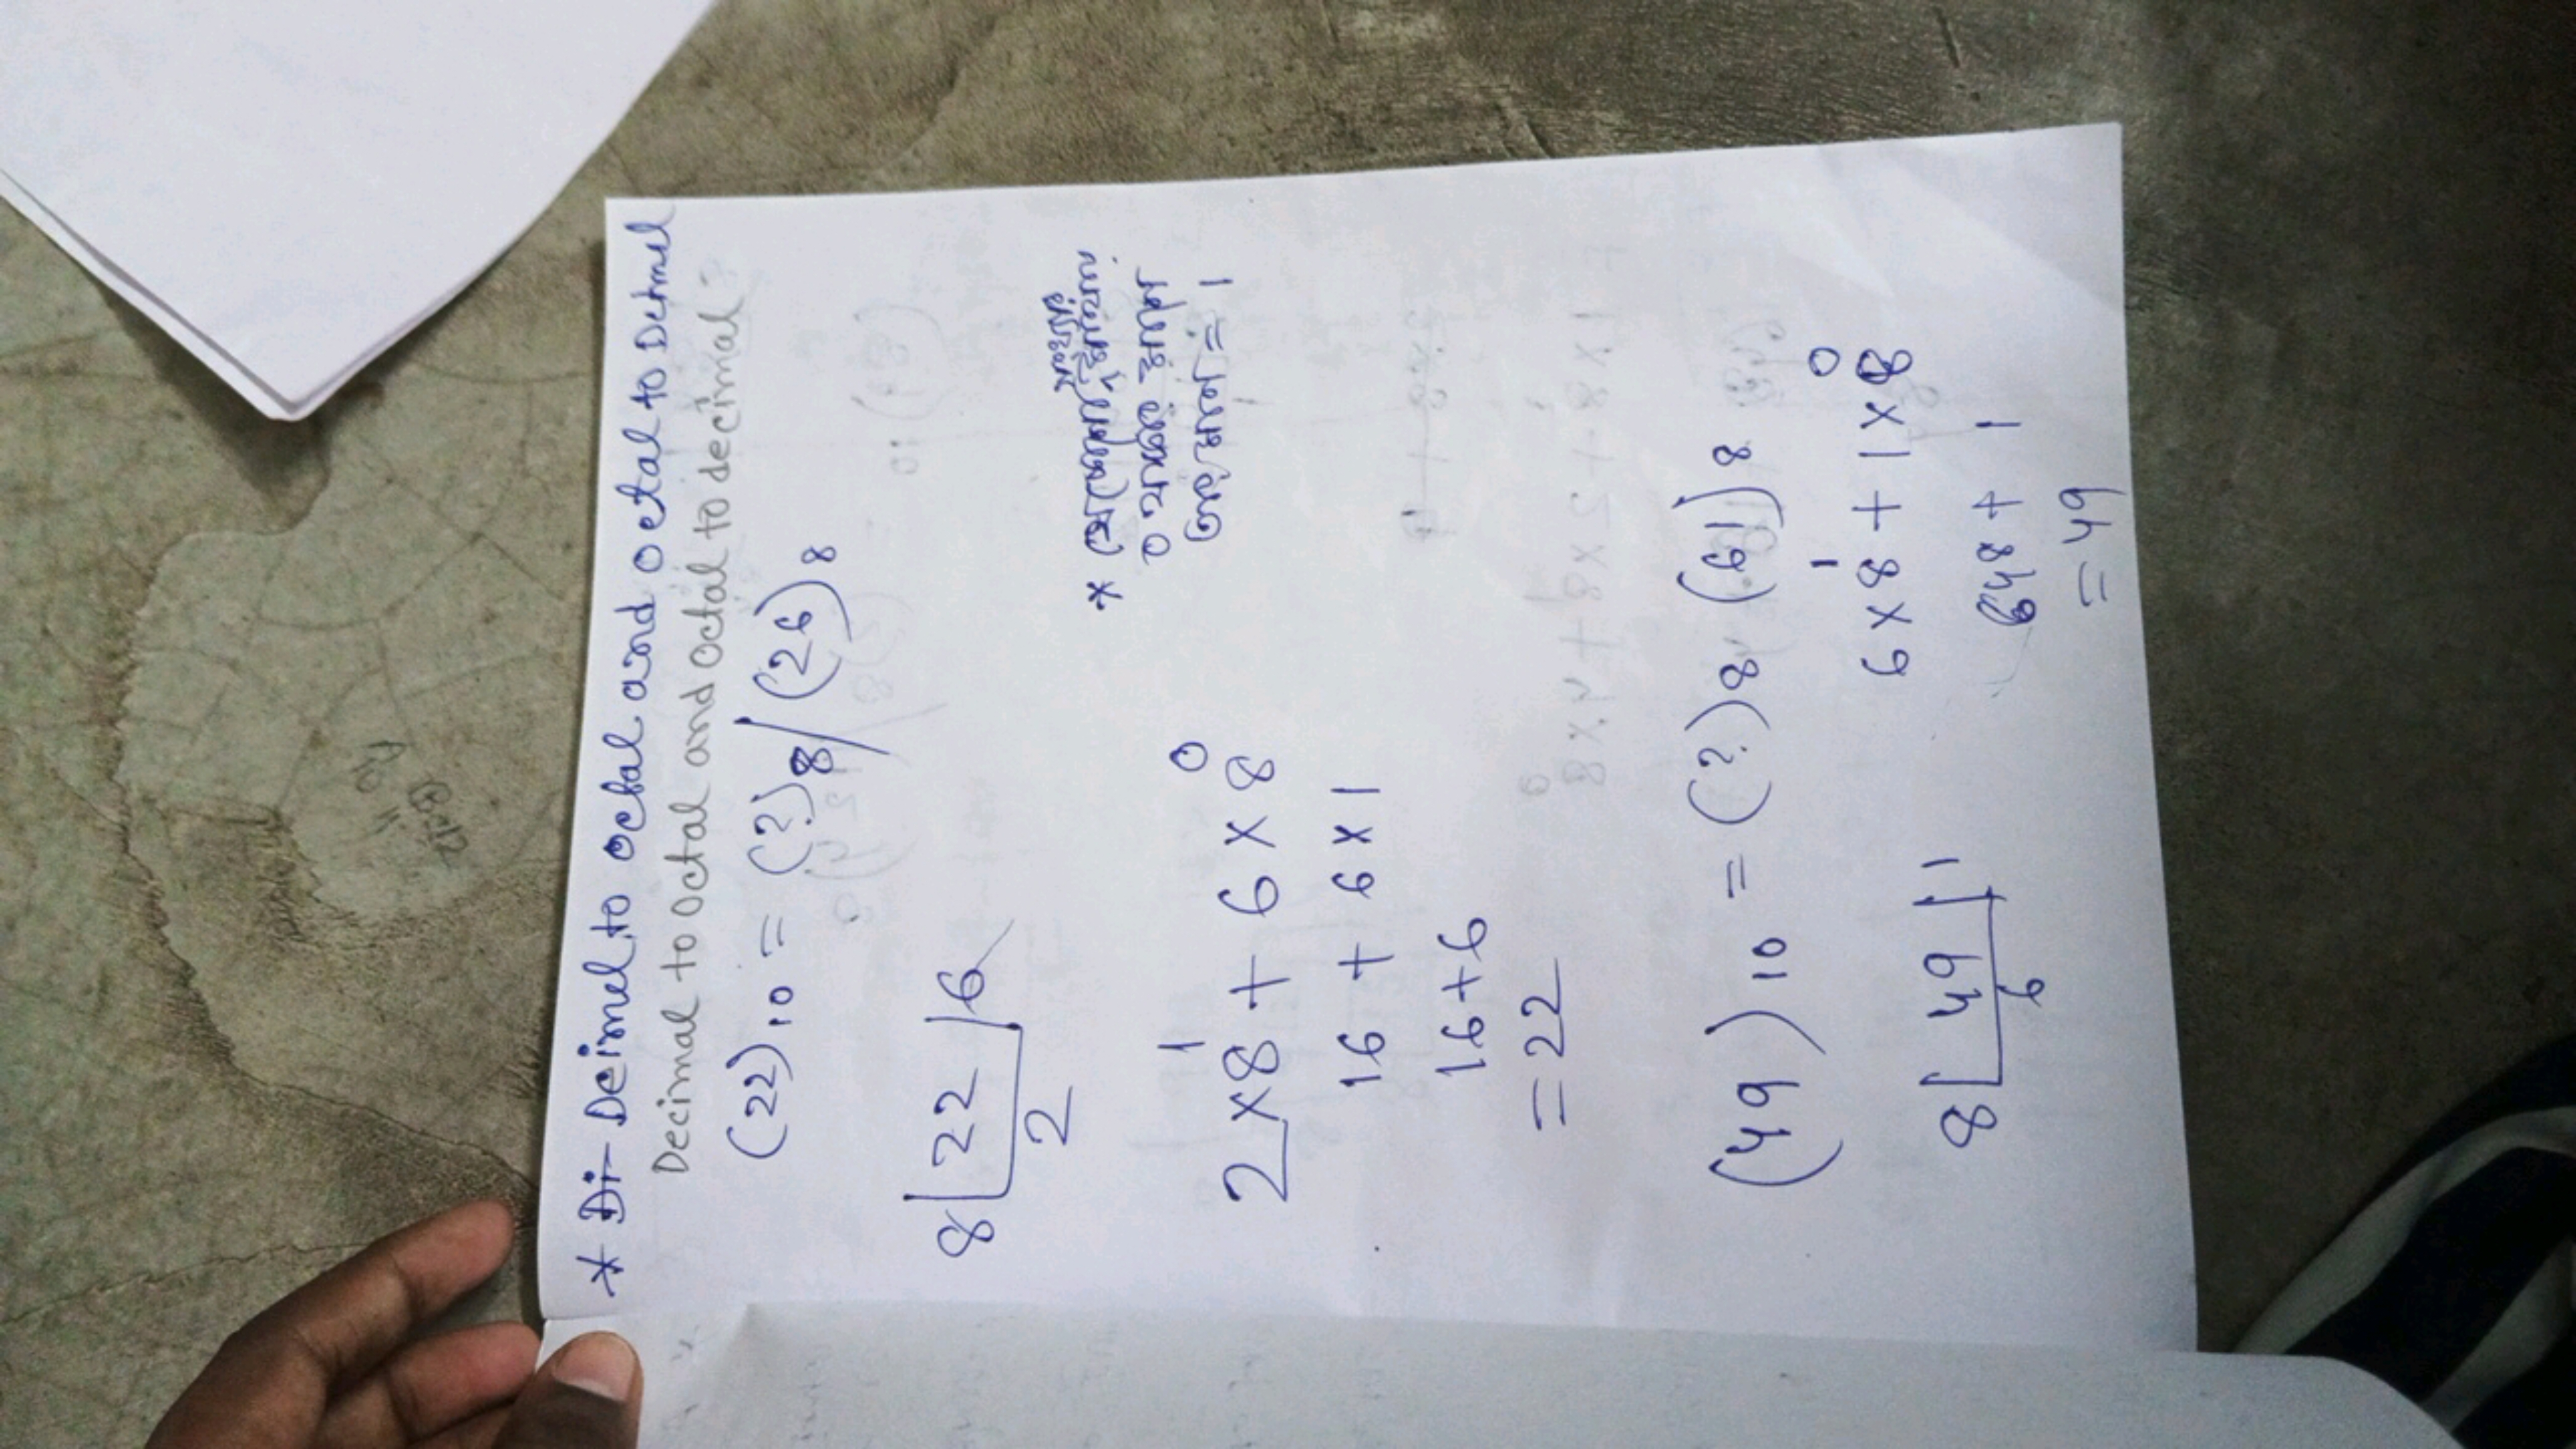 * Di- Deimel to octal and octal to Detmel
Decimal to octal and octal to decimal:
(22)10 = (?)8/(26)8
8 22 6
2
*
0
= 1
2×8¹ + 6×8⁰
16 + 6×1
16+6
=22
(49)10 = (?)8 (61)8
6×8¹ + 1×8⁰
8 49 1
6
48 + 1
= 49